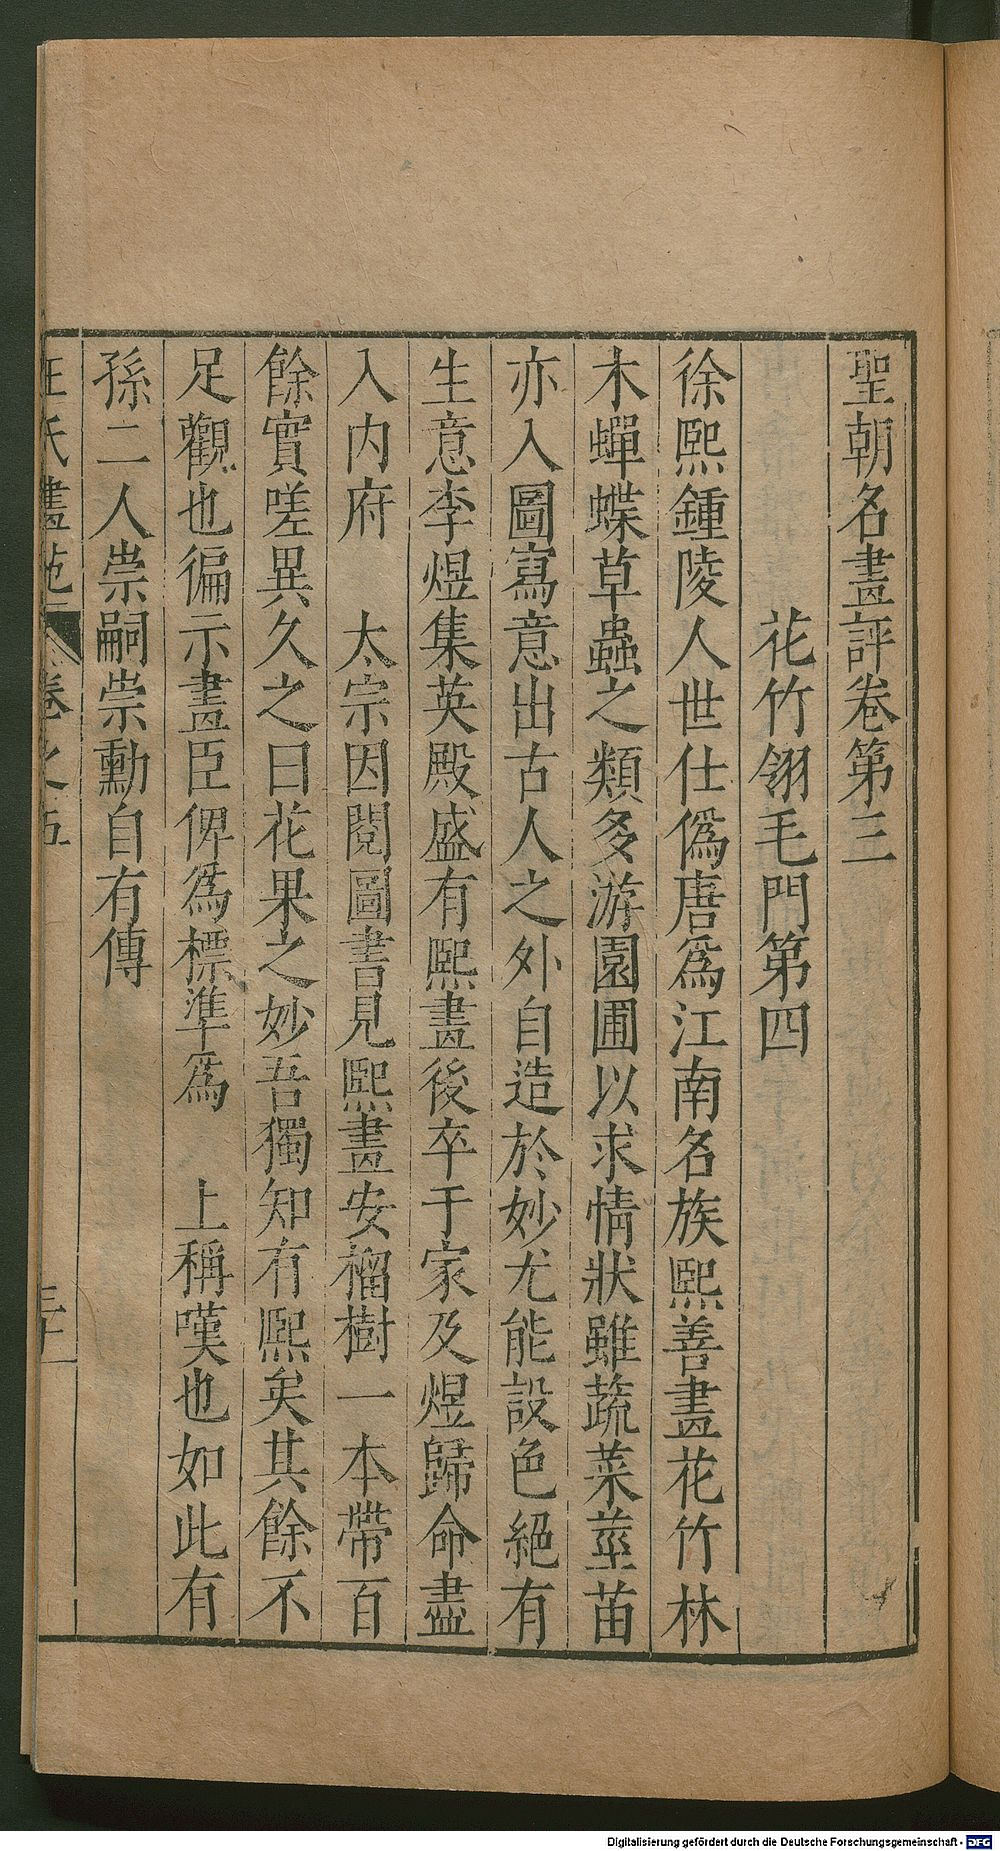 聖朝名畫評卷第三
花竹翎毛門第四
徐熙鍾陵人世仕僞唐爲江南名族熙善畫花竹林
木蟬蝶草蟲之類多游園圃以求情狀雖蔬菜莖苗
亦入圖寫意出古人之外自造於妙尤能設色絕有
生意李煜集英殿盛有熙畫後卒于家及煜歸命盡
入内府　太宗因閱圖書見熙畫安榴樹一本帶百
餘實嗟異久之曰花果之妙吾獨知有熙矣其餘不
足觀也徧示畫臣俾爲標準爲　上稱嘆也如此有
孫二人崇嗣崇勳自有傳
王氏畫苑　卷之五
Digitalisierung gefördert durch die Deutsche Forschungsgemeinschaft - DFG